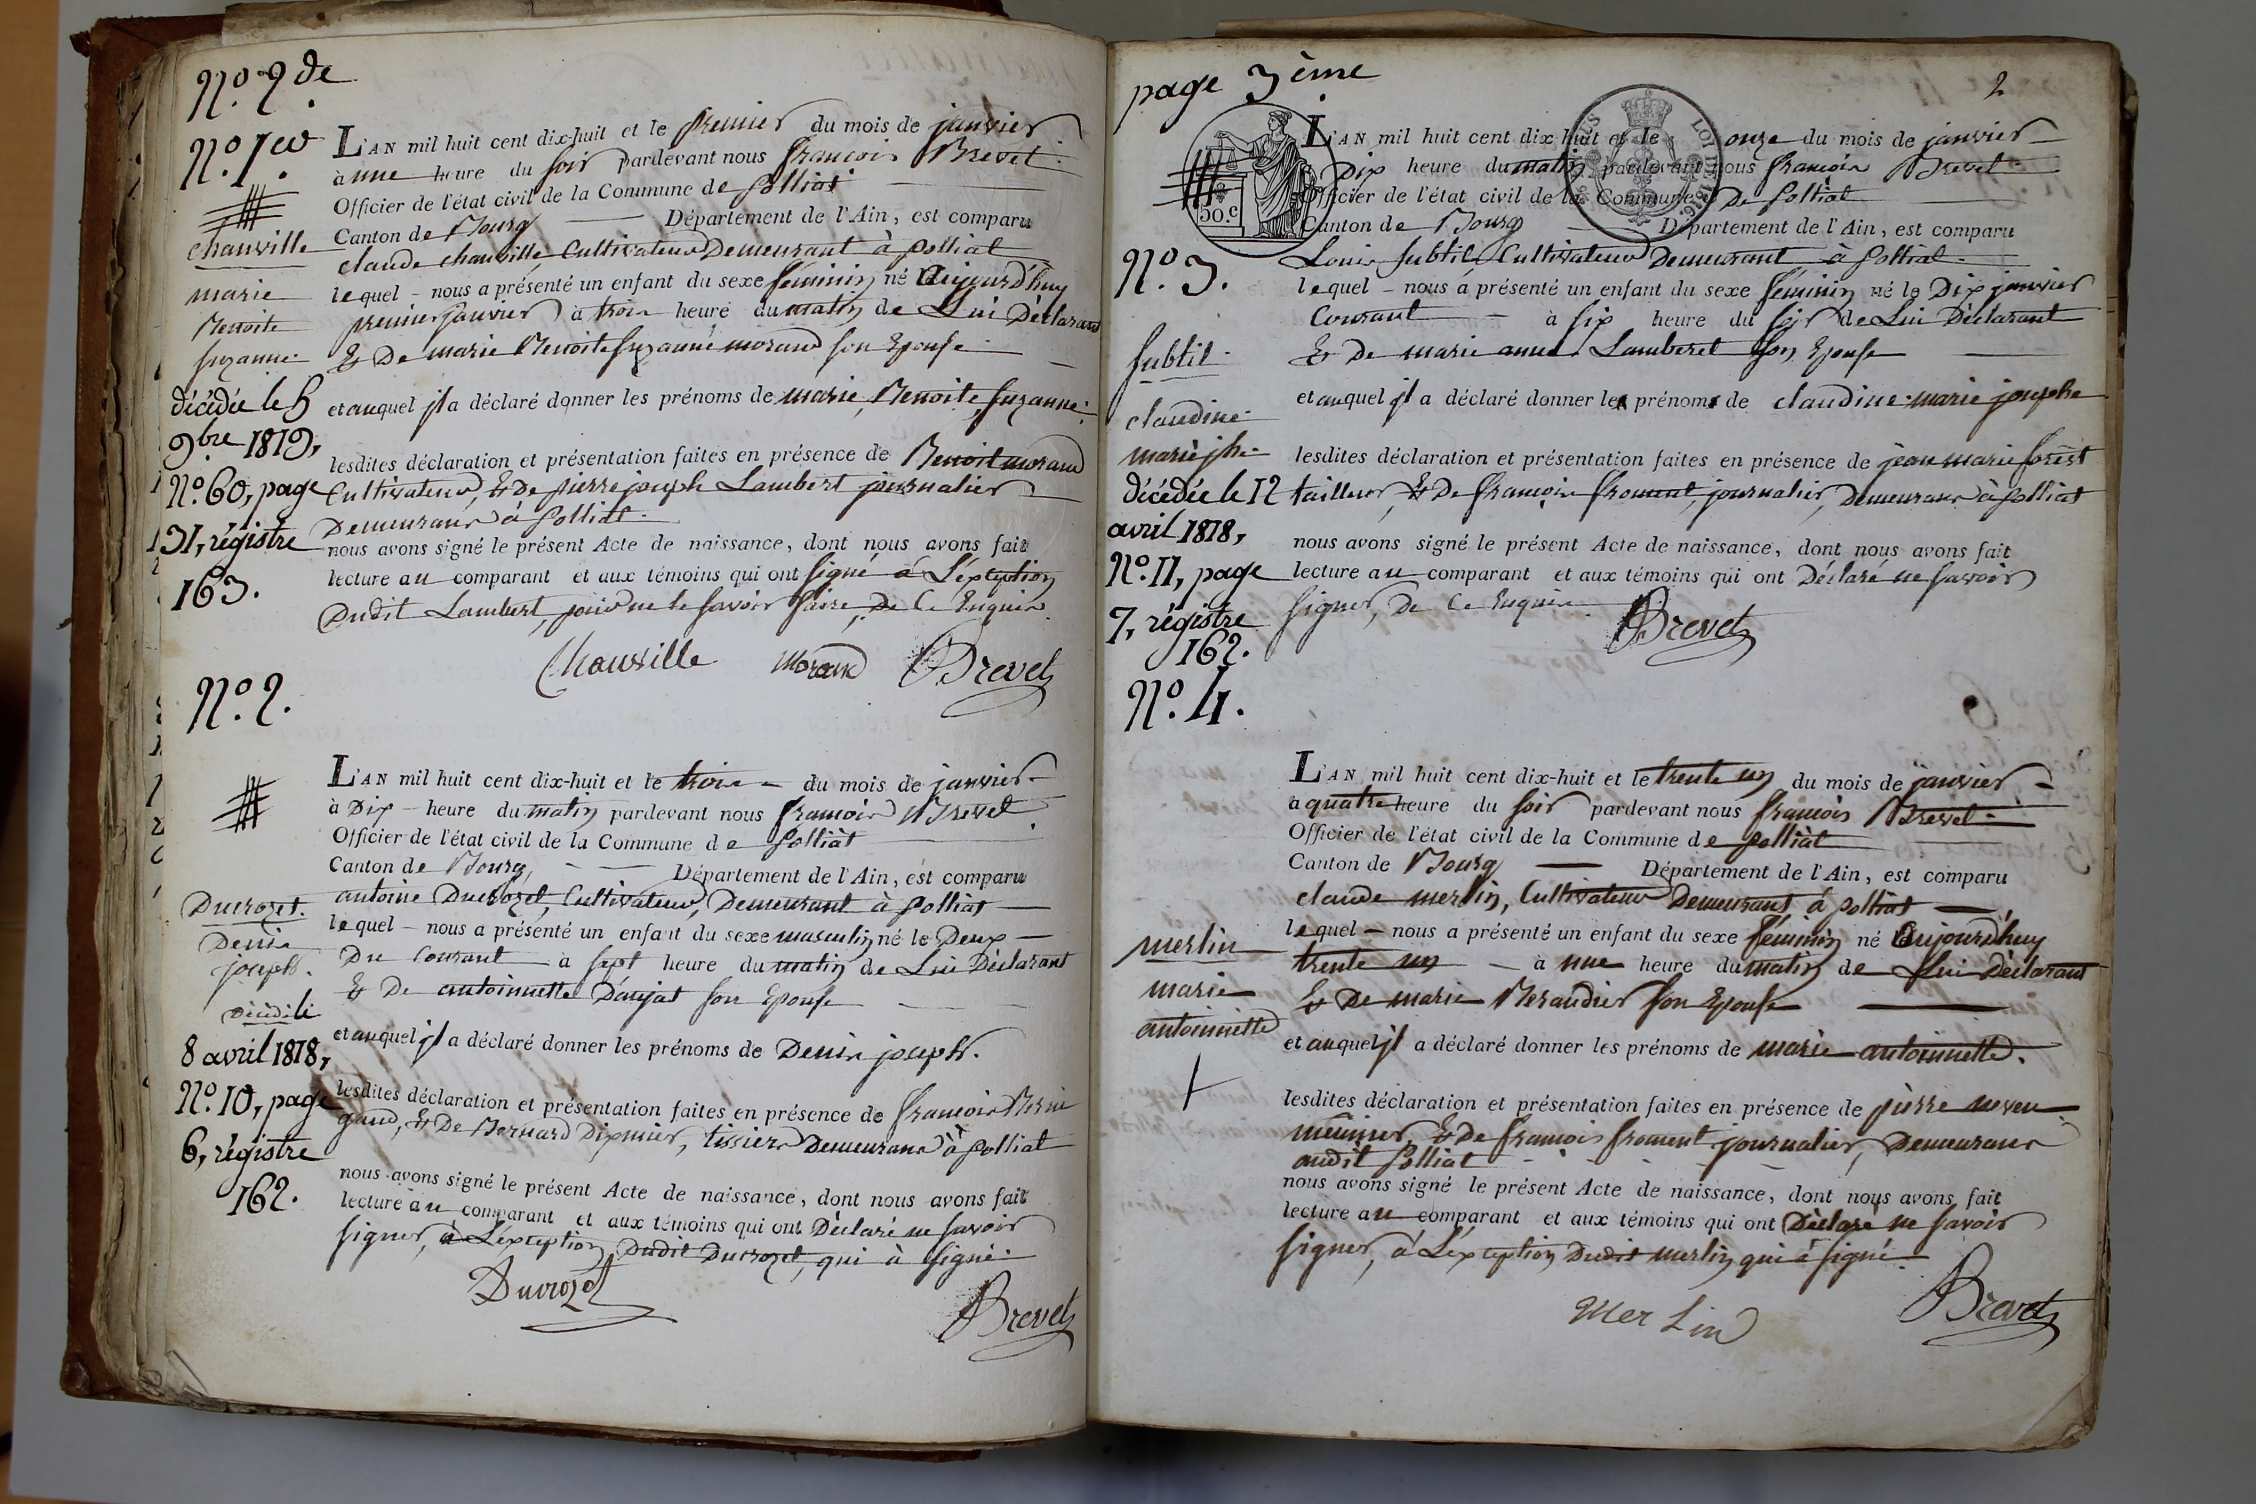 N.o 2 de
N.o 1er
L'AN mil huit cent dix-huit et le premier du mois de janvier
à une heure du soir pardevant nous françois Brevet
Officier de l'état civil de la Commune de Polliat
Canton de Bourg Département de l'Ain, est comparu
claude chauville, Cultivateur Demeurant à polliat
lequel nous a présenté un enfant du sexe féminin né aujourd'huy
premier janvier à trois heure du matin de Lui Déclarant
& De marie Benoite suzanne morand son Epouse
et auquel il a déclaré donner les prénoms de marie, Benoite, suzanne.
lesdites déclaration et présentation faites en présence de Benoit morand
Cultivateur, & De pierre joseph Lambert journalier
Demeurans à Polliat.
nous avons signé le présent Acte de naissance, dont nous avons fait
lecture au comparant et aux témoins qui ont signé à L'éxception
Dudit Lambert, pour ne le savoir faire, De Ce Enquis.
Chauville morand Brevet
chauville
marie
Benoite
suzanne.
décédée le 5
9bre 1819,
N.o 60, page
31, régistre
163.
N.o 2.
L'AN mil huit cent dix-huit et le trois du mois de janvier
à Dix heure du matin pardevant nous françois Brevet
Officier de l'état civil de la Commune de Polliat
Canton de Bourg, Département de l'Ain, est comparu
antoine Ducrozet, Cultivateur, Demeurant à Polliat
lequel nous a présenté un enfant du sexe masculin né le Deux
Du Courant à sept heure du matin de Lui Déclarant
& De antoinette Daujat son Epouse
et auquel il a déclaré donner les prénoms de Denis joseph.
lesdites déclaration et présentation faites en présence de françois Berni
gaud, & De Bernard Dixmier, tissiers Demeurans à Polliat
nous avons signé le présent Acte de naissance, dont nous avons fait
lecture au comparant et aux témoins qui ont Déclaré ne savoir
signer, à L'éxception Dudit Ducrozet, qui à signé.
Ducrozet
Brevet
Ducrozet.
Denis
joseph.
Décédé le
8 avril 1818,
N.o 10, page
6, régistre
162.
page 3ème
2
50 c.
LOI DE 1816.
L'AN mil huit cent dix-huit et le onze du mois de janvier
Dix heure du matin pardevant nous françois Brevet
Officier de l'état civil de la Commune De Polliat
Canton de Bourg Département de l'Ain, est comparu
Louis subtil, Cultivateur Demeurant à Polliat
lequel nous a présenté un enfant du sexe féminin né le Dix janvier
Courant à six heure du soir de Lui Déclarant
& De marie anne Lamberet son Epouse
et auquel il a déclaré donner les prénoms de claudine marie josephe
lesdites déclaration et présentation faites en présence de jean marie forêst
tailleur, & De françois froment, journalier, Demeurans à Polliat
nous avons signé le présent Acte de naissance, dont nous avons fait
lecture au comparant et aux témoins qui ont Déclaré ne savoir
signer, De Ce Enquis.
Brevet
N.o 3.
subtil.
claudine.
marie jphe.
décédée le 12
avril 1818,
N.o 11, page
7, régistre
162.
N.o 4.
L'AN mil huit cent dix-huit et le trente un du mois de janvier
à quatre heure du soir pardevant nous françois Brevet
Officier de l'état civil de la Commune de Polliat
Canton de Bourg Département de l'Ain, est comparu
claude merlin, Cultivateur Demeurant à polliat
lequel nous a présenté un enfant du sexe féminin né aujourd'huy
trente un à une heure du matin de Lui Déclarant
& De marie Berandier son Epouse
et auquel il a déclaré donner les prénoms de marie antoinette.
lesdites déclaration et présentation faites en présence de pierre neveu
meunier, & De françois froment journalier, Demeurans
audit Polliat
nous avons signé le présent Acte de naissance, dont nous avons fait
lecture au comparant et aux témoins qui ont Déclaré ne savoir
signer, à L'éxception Dudit merlin qui à signé.
Merlin
Brevet
merlin
marie
antoinette